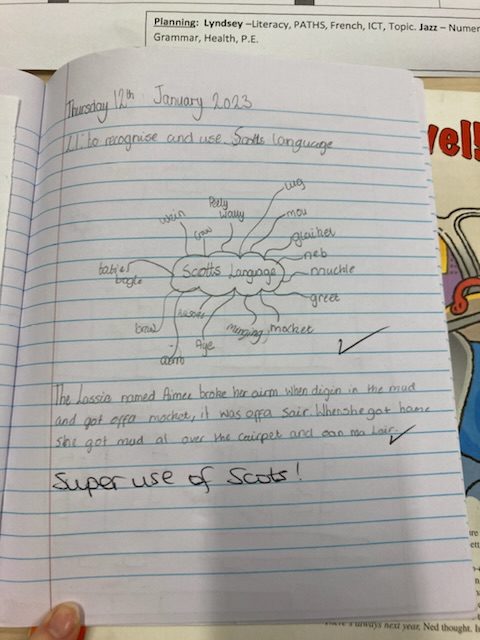 Planning: Lyndsey –Literacy, PATHS, French, ICT, Topic. Jazz – Numer
Grammar, Health, P.E.
Thursday 12th January 2023
LI: to recognise and use Scotts language
lug
Peely
wally
wain
mou
Craw
glaiket
neb
babies
bogle
Scotts Language
muckle
greet
braw
Aye
menging
mocket
The Lassie named Aimee broke her airm when digin in the mud
and got offa mocket, it was offa sair. When she got hame
she got mud al over the cairpet and oan ma lair.
Super use of Scots!
vel!
There's always next year, Ned thought.